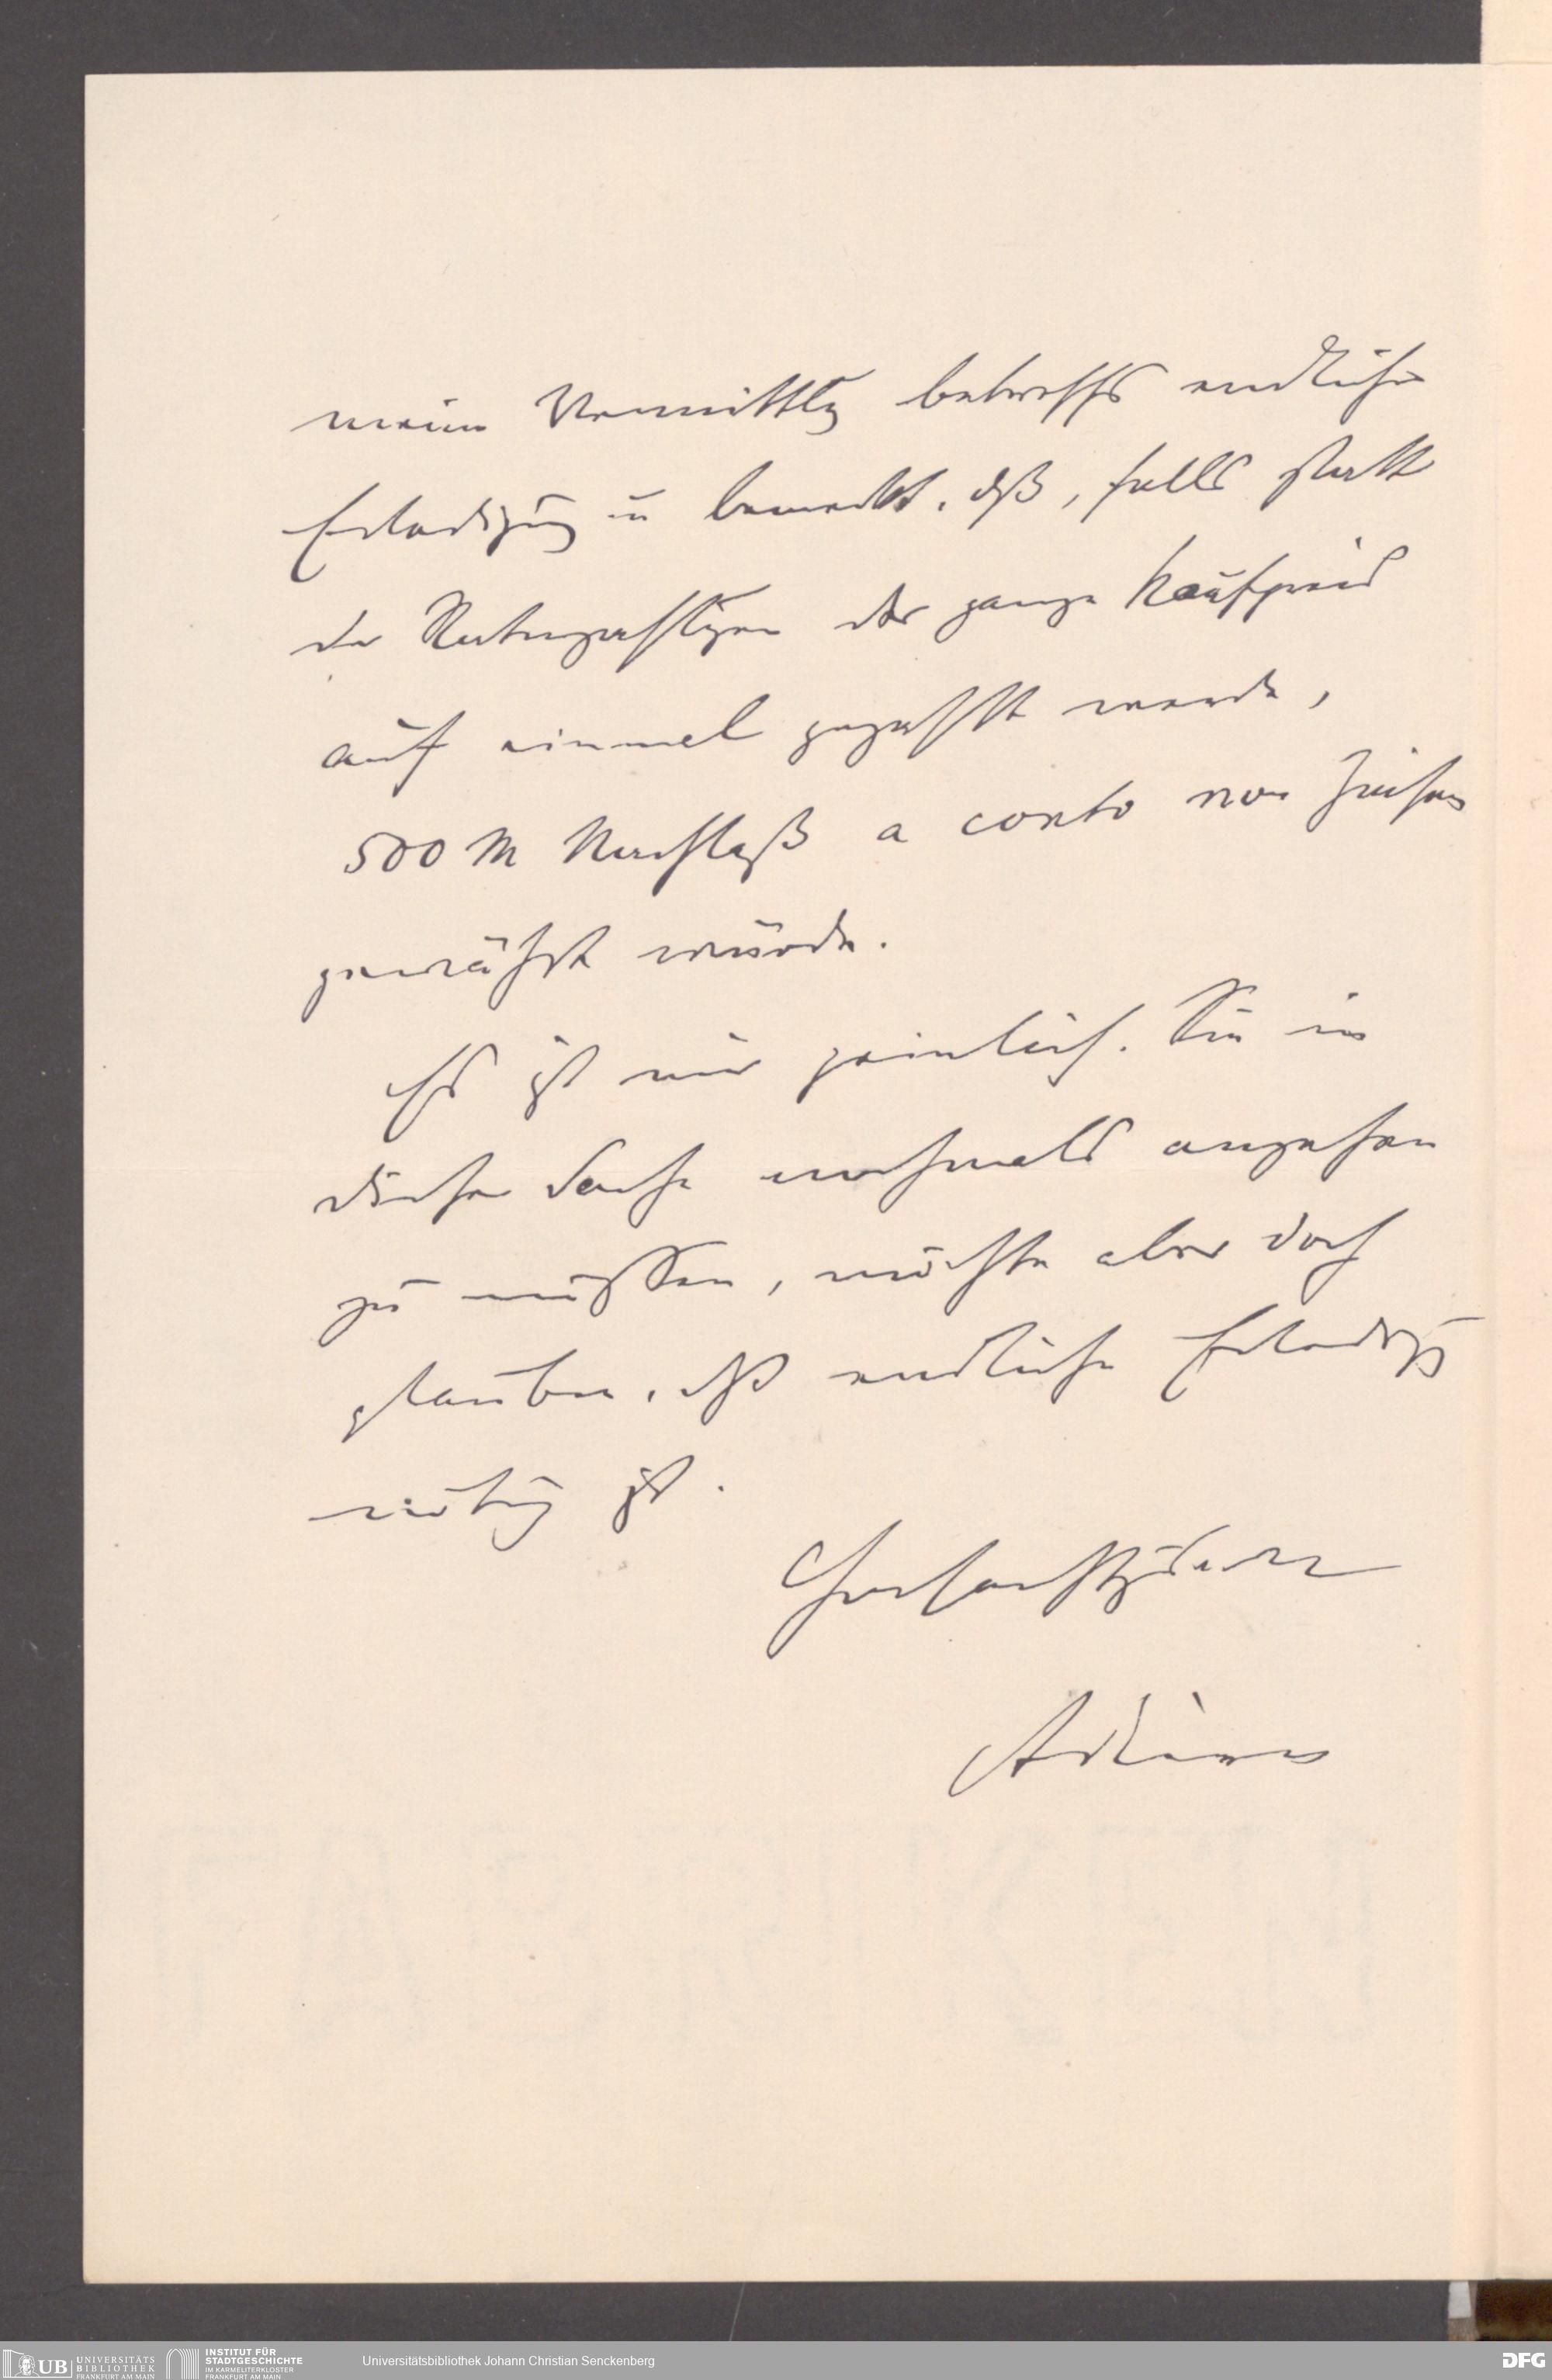 meine Vermittlg betreffs endliche
Erledigung u bemerkt, dß, falls statt
der Ratenzahlgen der ganze Kaufpreis
auf einmal gezahlt werde,
500 M Nachlaß a conto von
gewährt würde.
Es ist mir peinlich, Sie in
dieser Sache nochmals angehen
zu müssen, möchte aber doch
glauben, dß endliche Erledigg
nötig ist.
Hochachtgsvoll
Adickes
UB UNIVERSITÄTS
BIBLIOTHEK
FRANKFURT AM MAIN
INSTITUT FÜR
STADTGESCHICHTE
IM KARMELITERKLOSTER
FRANKFURT AM MAIN
Universitätsbibliothek Johann Christian Senckenberg
DFG